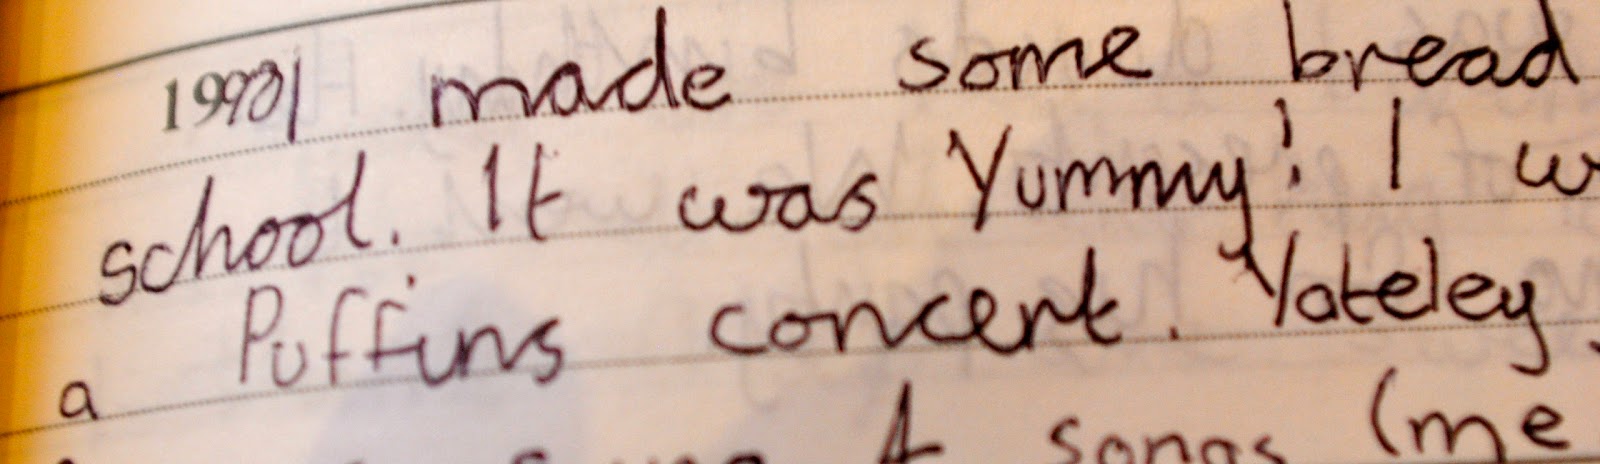 I made some bread
school. It was Yummy! I w
a Puffins concert. Yateley
4 songs (me